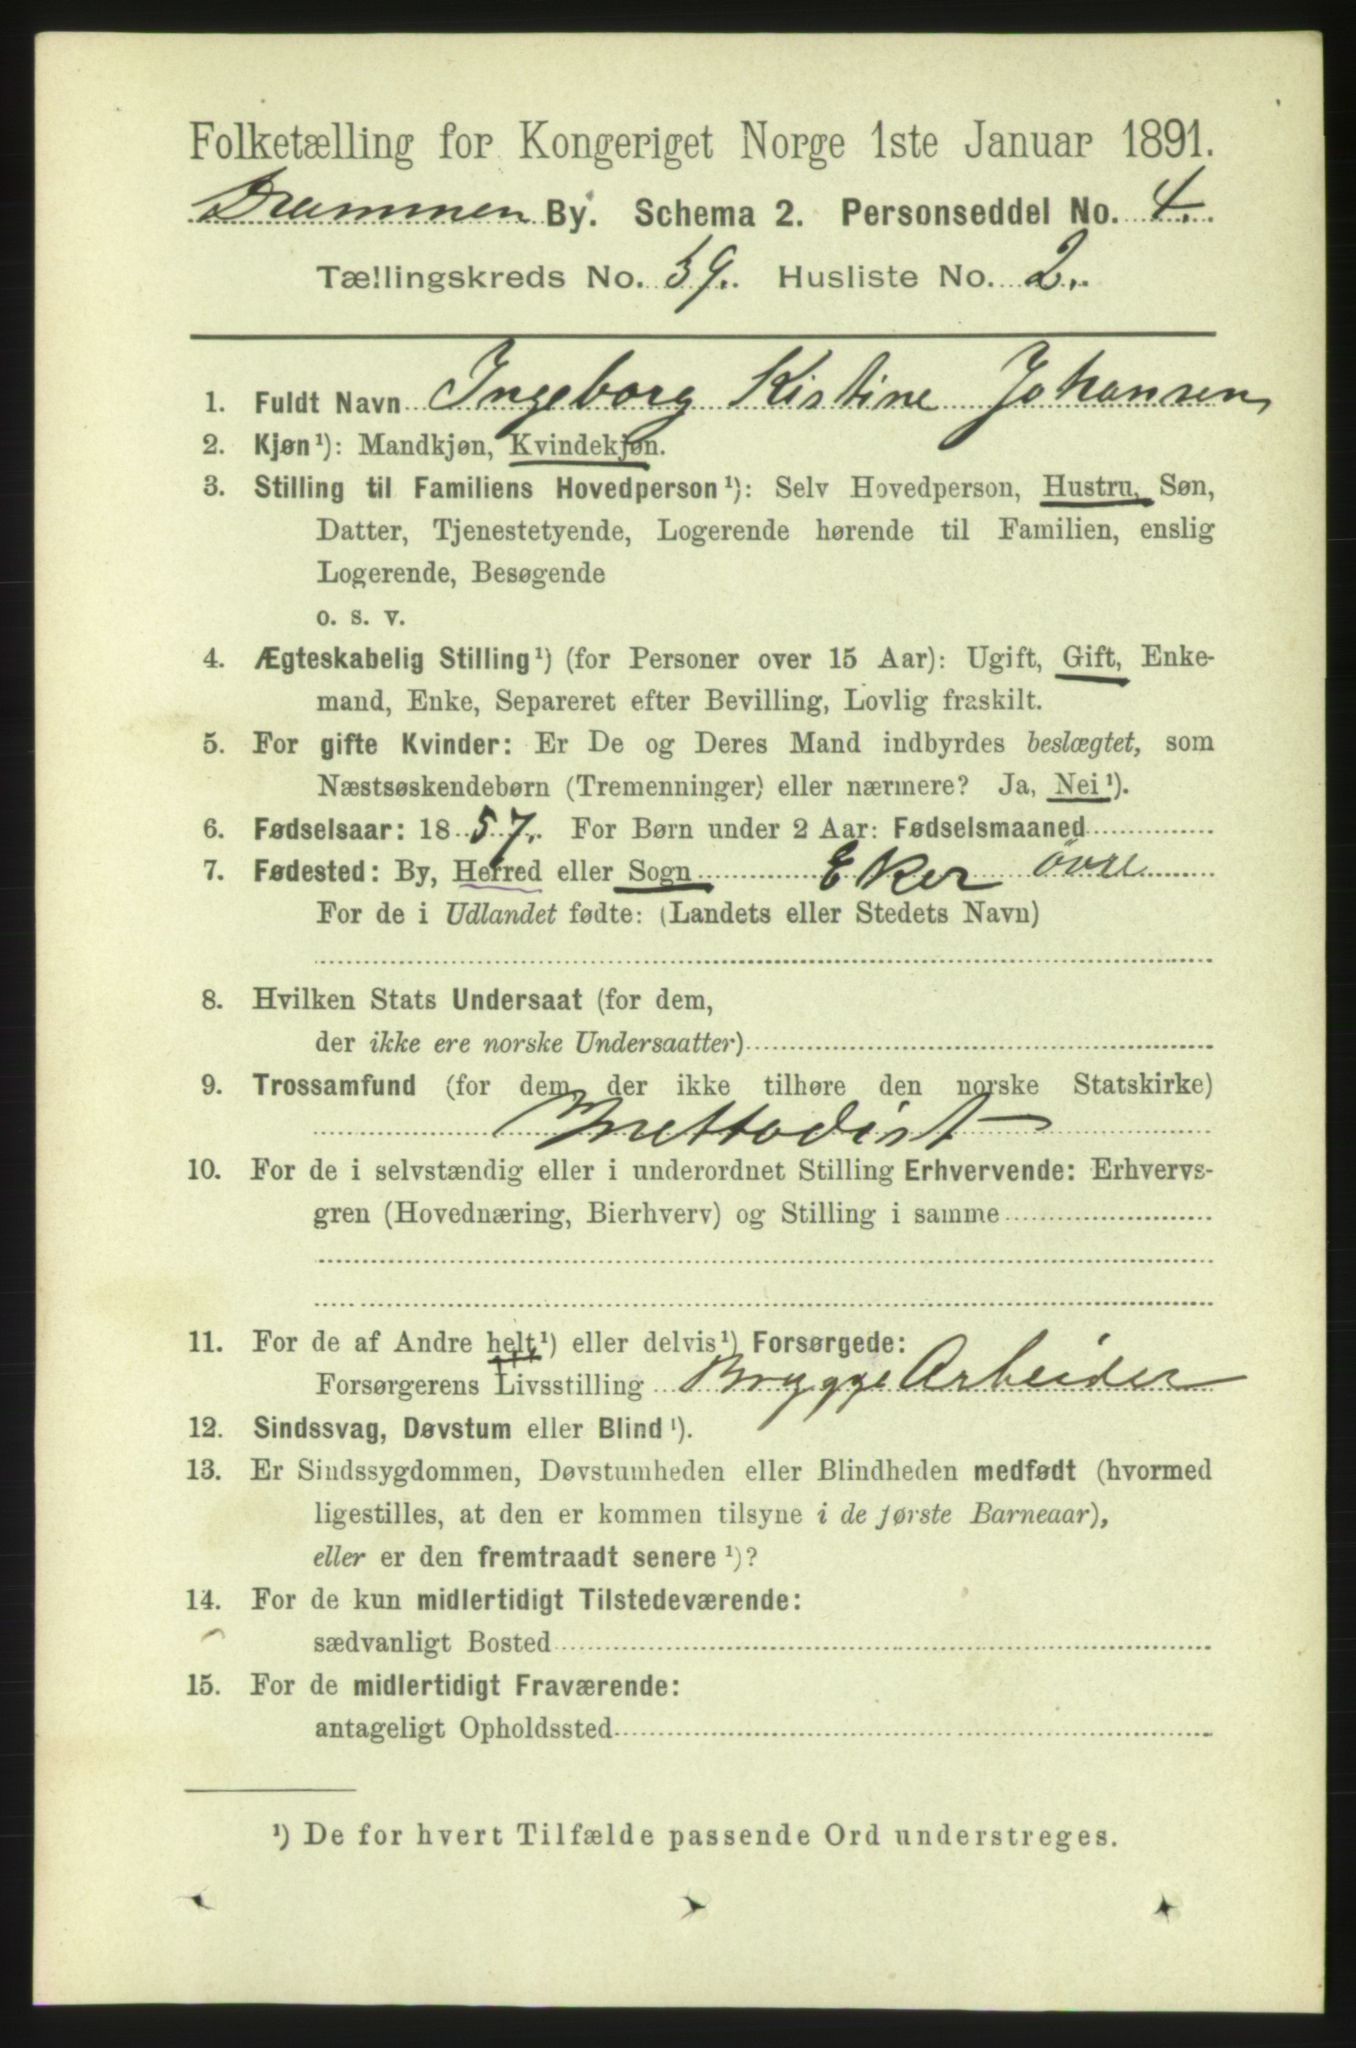 Folketælling for Kongeriget Norge 1ste Januar 1891.
Drammen By. Schema 2. Personseddel No. 4.
Tællingskreds No. 59. Husliste No. 2.
1. Fuldt Navn Ingeborg Kistine Johansen
2. Kjøn¹): Mandkjøn, Kvindekjøn.
3. Stilling til Familiens Hovedperson¹): Selv Hovedperson, Hustru, Søn,
Datter, Tjenestetyende, Logerende hørende til Familien, enslig
Logerende, Besøgende
o. s. v.
4. Ægteskabelig Stilling¹) (for Personer over 15 Aar): Ugift, Gift, Enke-
mand, Enke, Separeret efter Bevilling, Lovlig fraskilt.
5. For gifte Kvinder: Er De og Deres Mand indbyrdes beslægtet, som
Næstsøskendebørn (Tremenninger) eller nærmere? Ja, Nei¹).
6. Fødselsaar: 1857. For Børn under 2 Aar: Fødselsmaaned
7. Fødested: By, Herred eller Sogn Eker övre
For de i Udlandet fødte: (Landets eller Stedets Navn)
8. Hvilken Stats Undersaat (for dem,
der ikke ere norske Undersaatter)
9. Trossamfund (for dem, der ikke tilhøre den norske Statskirke)
Mettodist
10. For de i selvstændig eller i underordnet Stilling Erhvervende: Erhvervs-
gren (Hovednæring, Bierhverv) og Stilling i samme
11. For de af Andre helt¹) eller delvis¹) Forsørgede:
Forsørgerens Livsstilling BryggeArbeider
12. Sindssvag, Døvstum eller Blind¹).
13. Er Sindssygdommen, Døvstumheden eller Blindheden medfødt (hvormed
ligestilles, at den er kommen tilsyne i de første Barneaar),
eller er den fremtraadt senere¹)?
14. For de kun midlertidigt Tilstedeværende:
sædvanligt Bosted
15. For de midlertidigt Fraværende:
antageligt Opholdssted
¹) De for hvert Tilfælde passende Ord understreges.